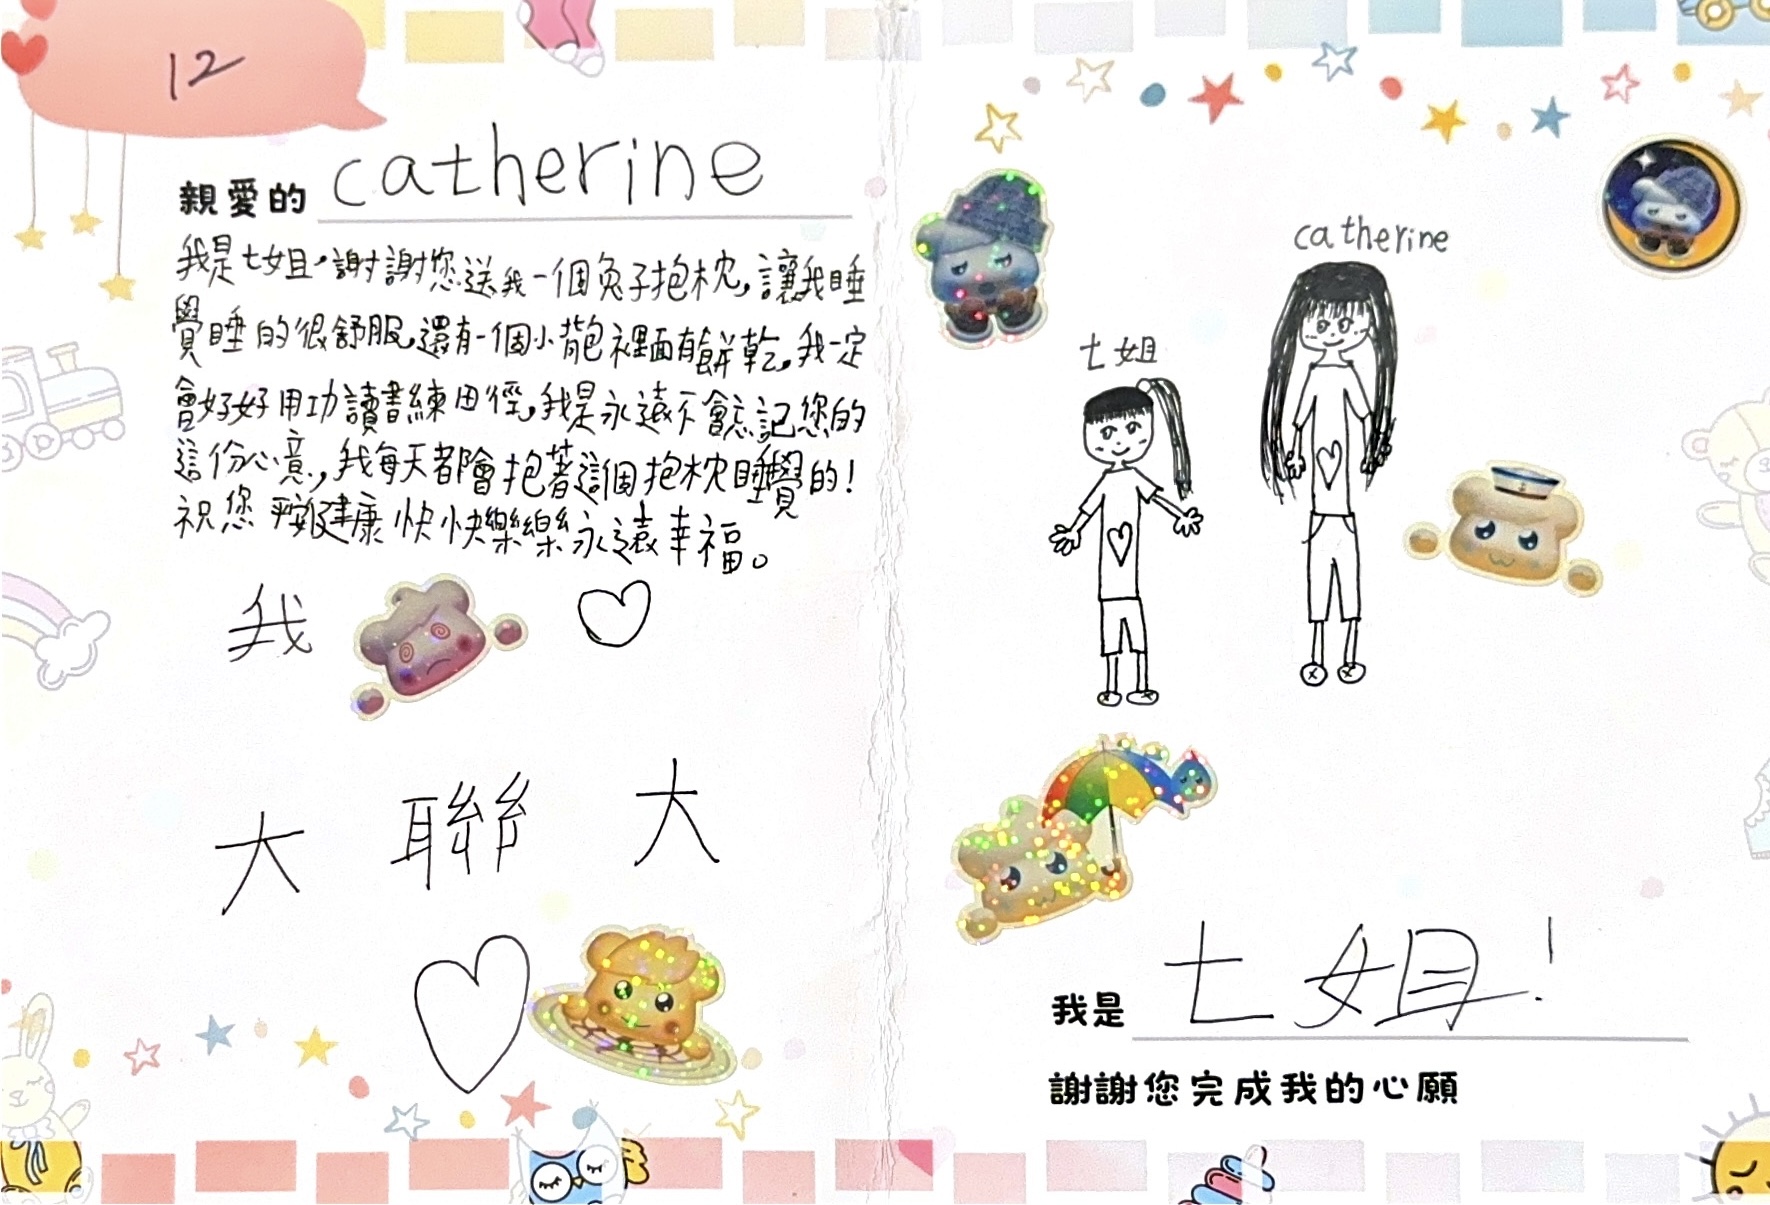 12
親愛的 catherine
我是七姐,謝謝您送我一個兔子抱枕,讓我睡
覺睡的很舒服,還有一個小背包裡面有餅乾,我一定
會好好用功讀書練田徑,我是永遠不會忘記您的
這份心意,我每天都會抱著這個抱枕睡覺的!
祝您平安健康快快樂樂永遠幸福。
我
大 聯 大
catherine
七姐
我是 七姐!
謝謝您完成我的心願